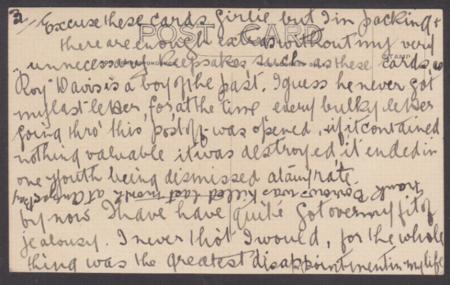 3/ Excuse these cards girlie but I'm packing &
there are enough extras without my very
POST CARD
unnecessary keepsakes such as these cards.
Roy Davis is a boy of the past. I guess he never got
my last letter, for at the time every bulky letter
going thro' this post off was opened, if it contained
nothing valuable it was destroyed, it ended in
one youth being dismissed at any rate.
Frank was killed last month at
by now I have have quite got over my fit of
jealousy. I never thot I would, for the whole
thing was the greatest disappointment in my life